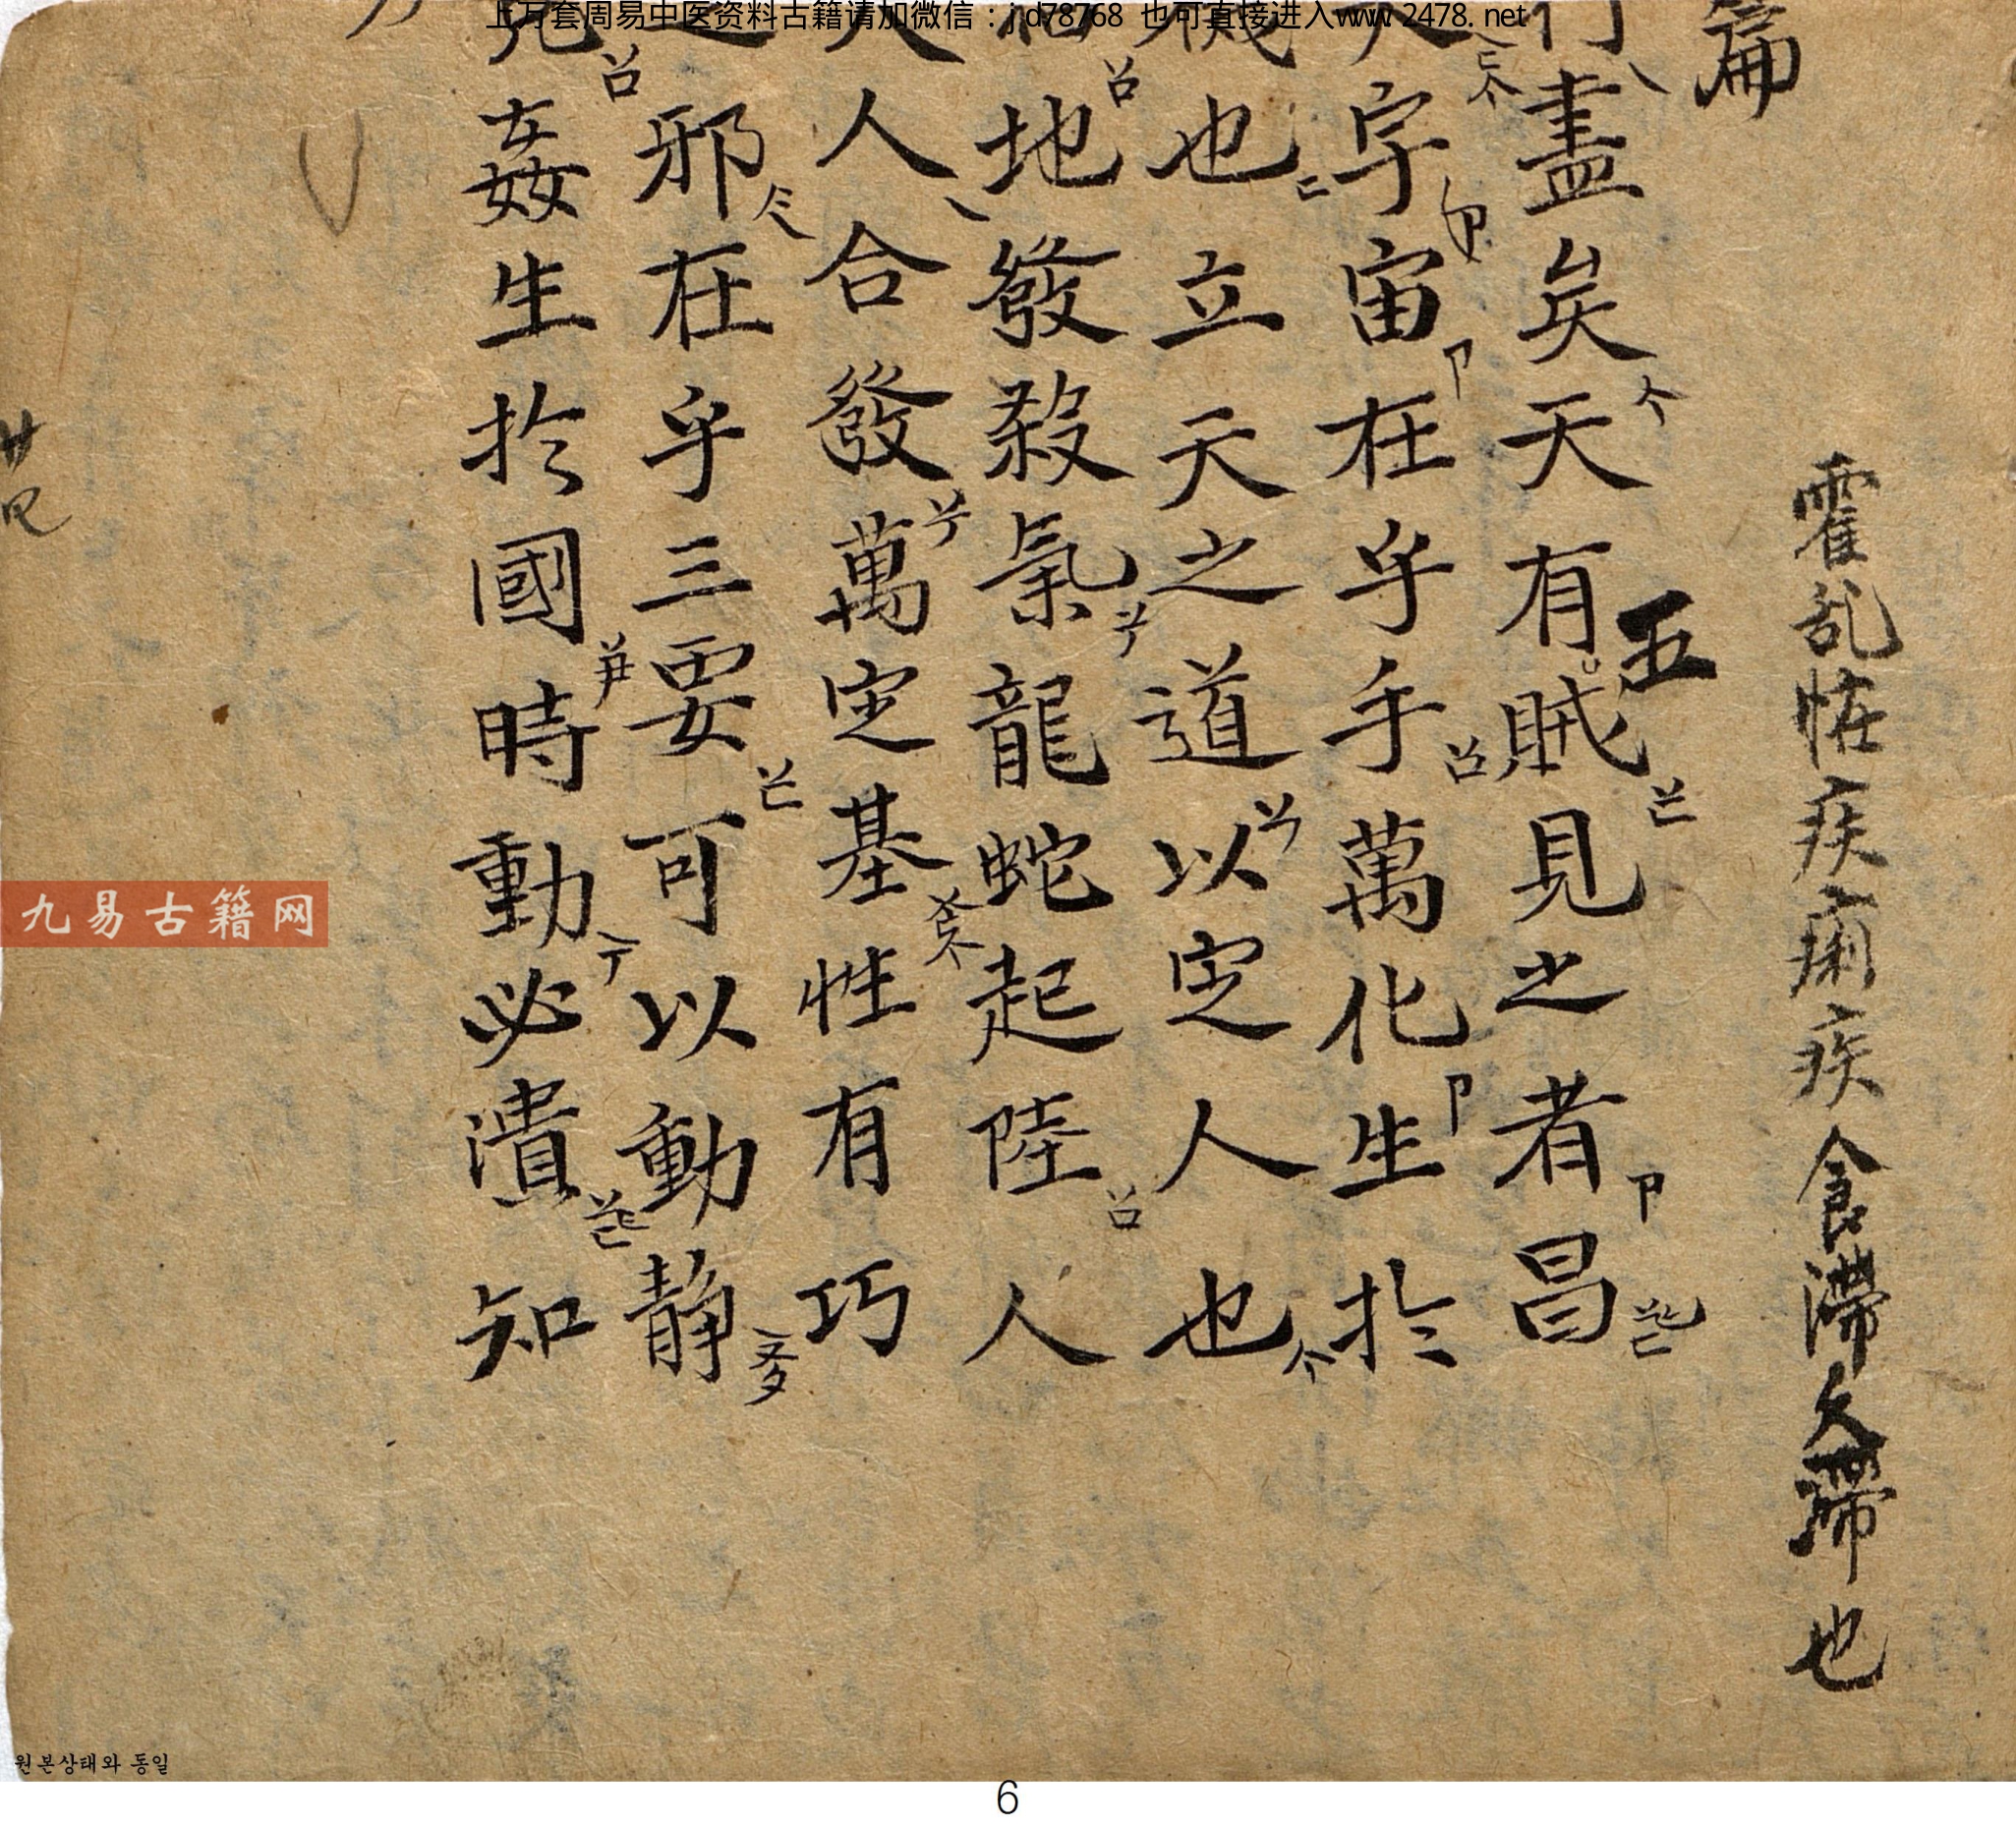 上万套周易中医资料古籍请加微信：jd78768 也可直接进入www.2478.net
篇
霍乱怪疾痢疾食滯久滯也
行盡矣天有五賊見之者昌
宇宙在乎手萬化生扵
機也立天之道以定人也
地發殺氣龍蛇起陸人
人合發萬定基性有巧
之邪在乎三要可以動静
姦生扵國時動必潰知
九易古籍网
원본상태와 동일
6